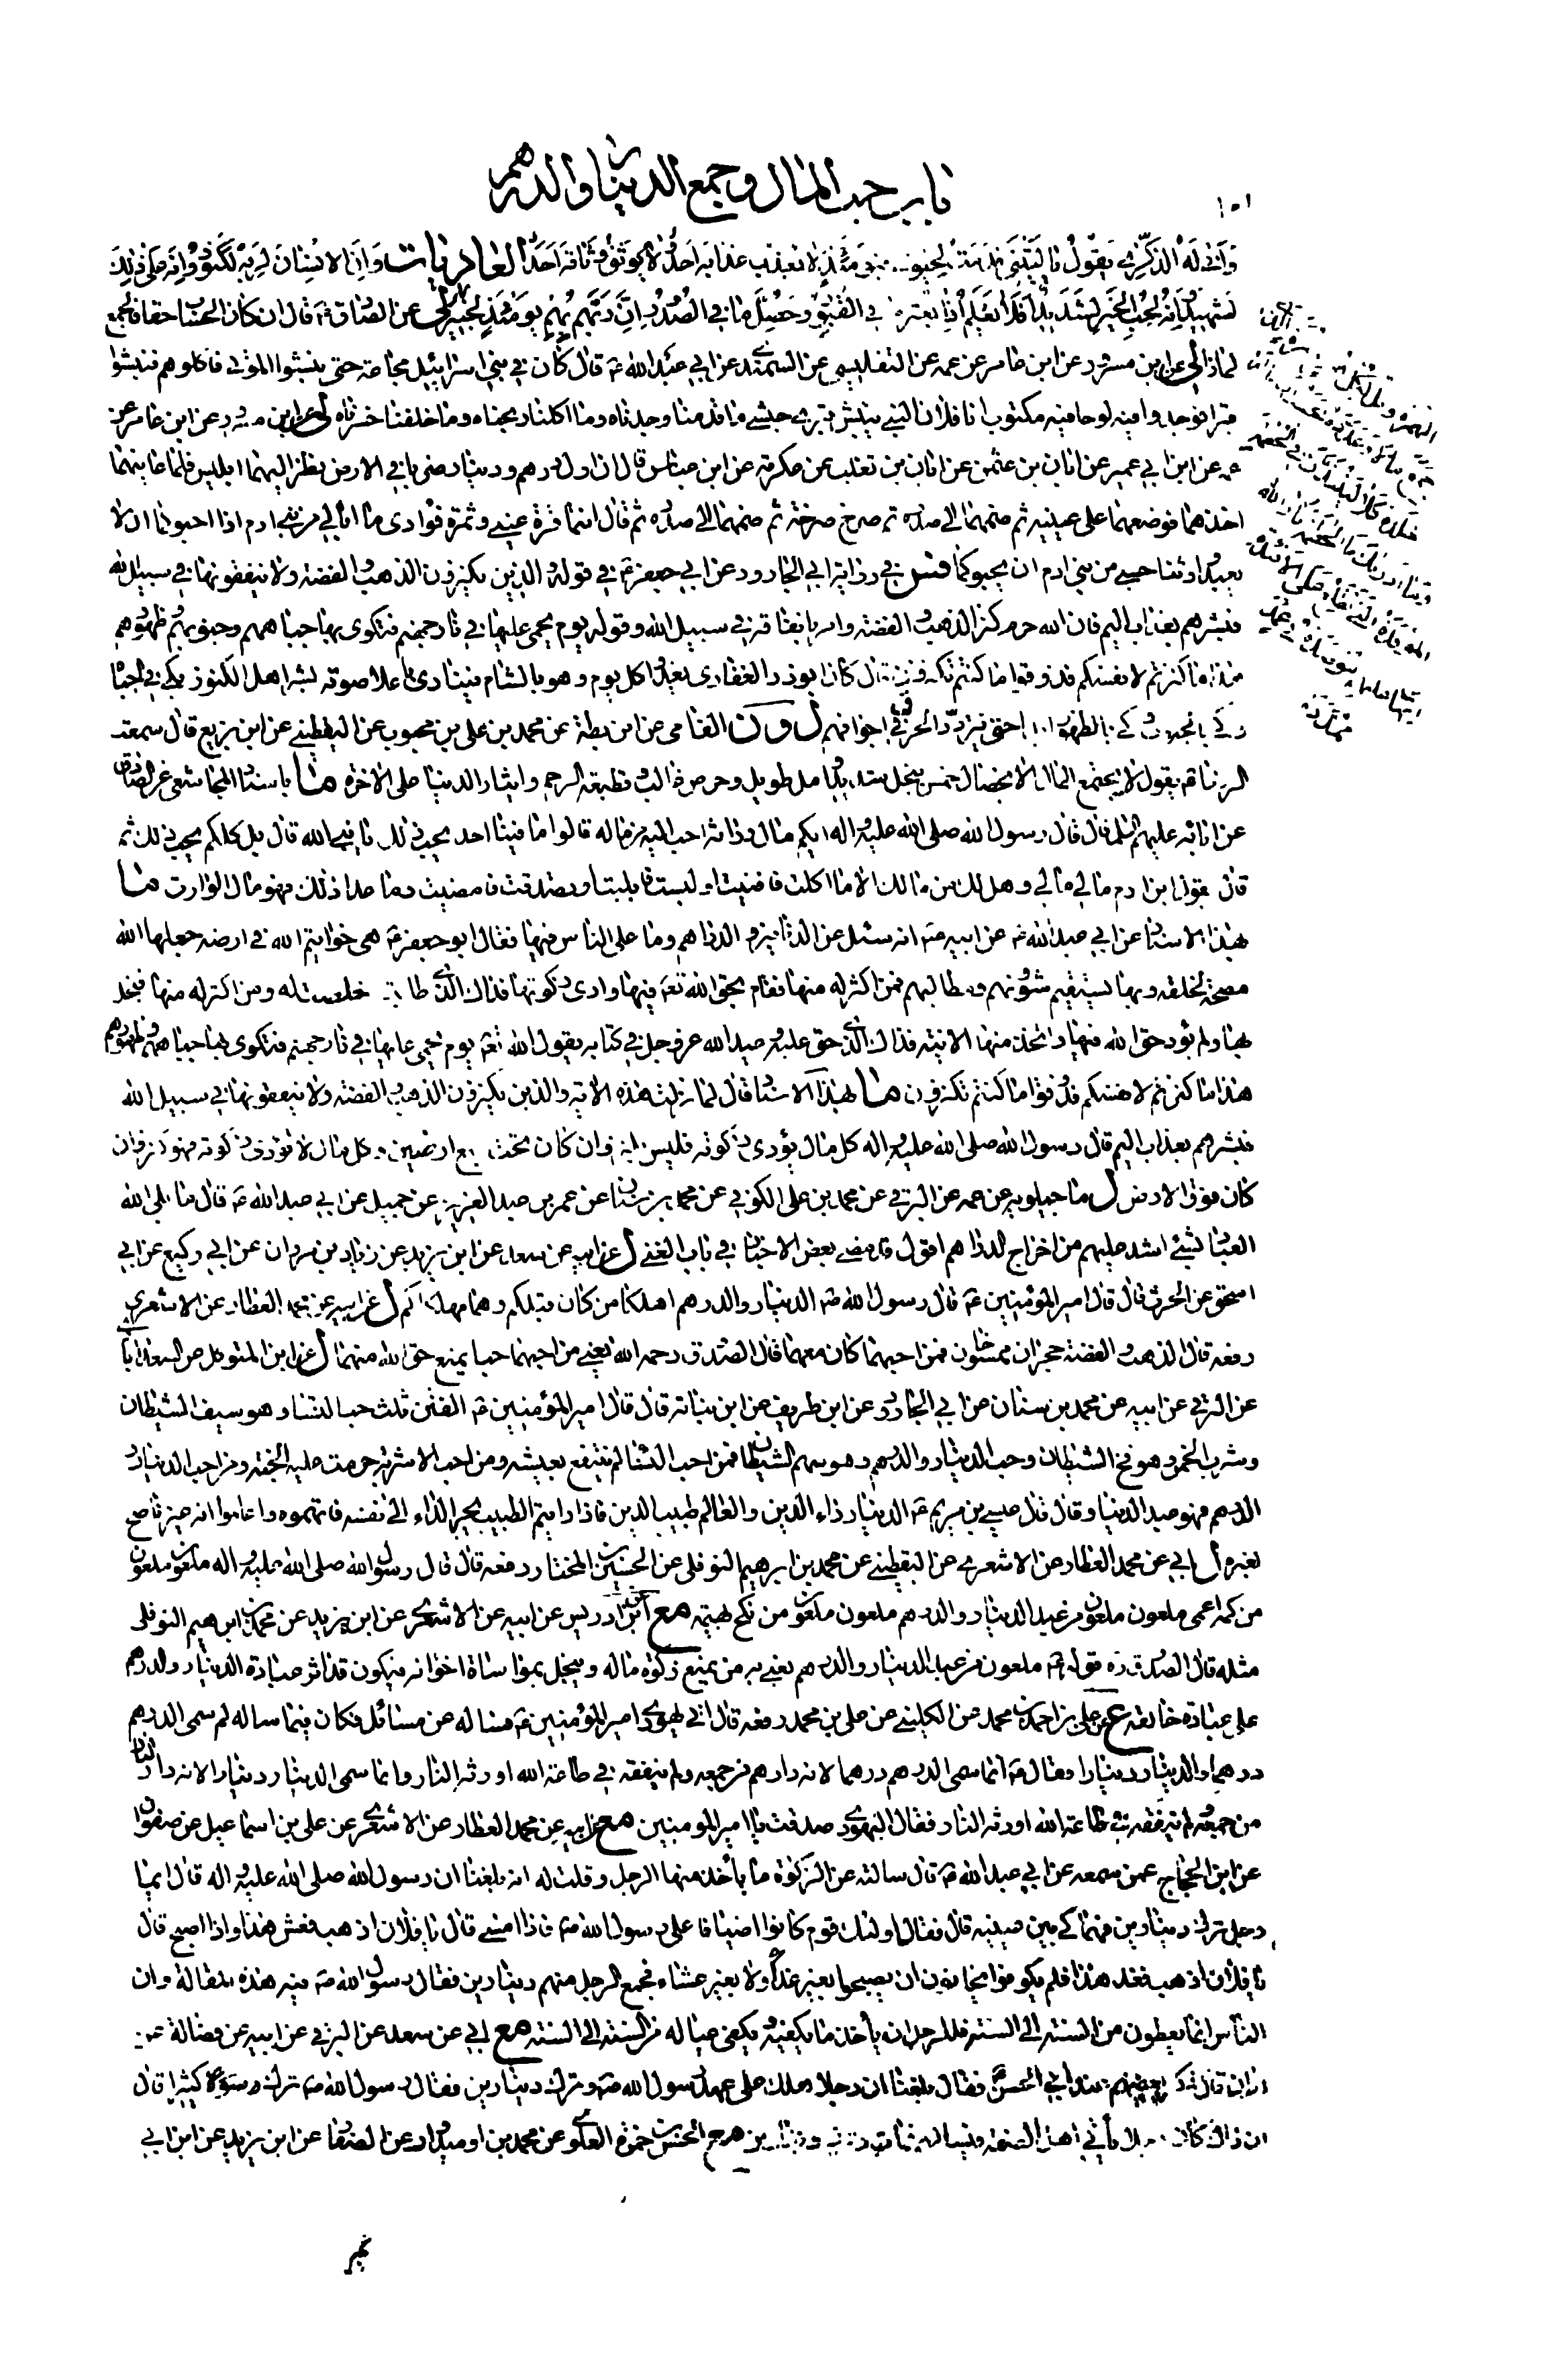 ١٠١
باب حب المال وجمع الدينار والدرهم
وَأَنّى لَهُ الذِّكْرى يَقُولُ يا لَيْتَنِي قَدَّمْتُ لِحَيوتِي فَيَوْمَئِذٍ لا يُعَذِّبُ عَذابَهُ أَحَدٌ وَلا يُوثِقُ وَثاقَهُ أَحَدٌ العاديات وَإِنَّ الإنسان لِرَبِّهِ لَكَنُودٌ وَإِنَّهُ عَلى ذلِكَ
لَشَهِيدٌ وَإِنَّهُ لِحُبِّ الْخَيْرِ لَشَدِيدٌ أَفَلا يَعْلَمُ إِذا بُعْثِرَ ما فِي الْقُبُورِ وَحُصِّلَ ما فِي الصُّدُورِ إِنَّ رَبَّهُمْ بِهِمْ يَوْمَئِذٍ لَخَبِيرٌ عن الصادق ع قال ان كان الحساب حقا فالجمع
لماذا لى عن ابن مسرور عن ابن عامر عن عمه عن التفليسي عن السمندي عن ابي عبد الله ع قال كان في بني اسرائيل مجاعة حتى نبشوا الموتى فاكلوهم فنبشوا
قبرا فوجدوا فيه لوحا فيه مكتوب انا فلان النبي ينبش قبري حبشي ما قدمنا وجدناه وما اكلنا ربحناه وما خلفنا خسرناه لى عن ابن مسرور عن ابن عامر عن
عمه عن ابن ابي عمير عن ابان بن عثمن عن ابان بن تغلب عن عكرمة عن ابن عباس قال ان اول درهم ودينار ضربا في الارض نظر اليهما ابليس فلما عاينهما
اخذهما فوضعهما على عينيه ثم ضمهما الى صدره ثم صرخ صرخة ثم ضمهما الى صدره ثم قال انتما قرة عيني وثمرة فؤادي ما ابالي من بني ادم اذا احبوكما ان لا
يعبدوا وثنا حسبي من بني ادم ان يحبوكما فس في رواية ابي الجارود عن ابي جعفر ع في قوله والذين يكنزون الذهب والفضة ولا ينفقونها في سبيل الله
فبشرهم بعذاب اليم فان الله حرم كنز الذهب والفضة وامر بانفاقه في سبيل الله وقوله يوم يحمى عليها في نار جهنم فتكوى بها جباههم وجنوبهم وظهورهم
هذا ما كنزتم لانفسكم فذوقوا ما كنتم تكنزون قال كان ابو ذر الغفاري يغدوا كل يوم وهو بالشام فينادي باعلا صوته بشر اهل الكنوز بكي في الجباه
وكي بالجنوب وكي بالظهور ابدا حتى يتردد الحر في اجوافهم ل ون الفامي عن ابن بطة عن محمد بن علي بن محبوب عن اليقطيني عن ابن بزيع قال سمعت
الرضا ع يقول لا يجتمع المال الا بخصال خمس ببخل شديد وامل طويل وحرص غالب وقطيعة الرحم وايثار الدنيا على الاخرة ما باسناد المجاشعي عن الصادق
عن ابائه عليهم السلم قال قال رسول الله صلى الله عليه واله ايكم مال وارثه احب اليه من ماله قالوا ما فينا احد يحب ذلك يا نبي الله قال بل كلكم يحب ذلك ثم
قال يقول ابن ادم مالي مالي وهل لك من مالك الا ما اكلت فافنيت او لبست فابليت او تصدقت فامضيت وما عدا ذلك فهو مال الوارث ما
بهذا الاسناد عن ابي عبد الله ع عن ابيه ع انه سئل عن الدنانير والدراهم وما على الناس فيها فقال ابو جعفر ع هي خواتيم الله في ارضه جعلها الله
مصحة لخلقه وبها تستقيم شؤنهم ومطالبهم فمن اكثر له منها فقام بحق الله تعه فيها وادى زكوتها فذاك الذي طابت وخلصت له ومن اكثر له منها فبخل
بها ولم يؤد حق الله فيها واتخذ منها الانية فذاك الذي حق عليه وعيد الله عز وجل في كتابه يقول الله تعه يوم يحمى عليها في نار جهنم فتكوى بها جباههم وجنوبهم وظهورهم
هذا ما كنزتم لانفسكم فذوقوا ما كنتم تكنزون ما بهذا الاسناد قال لما نزلت هذه الاية والذين يكنزون الذهب والفضة ولا ينفقونها في سبيل الله
فبشرهم بعذاب اليم قال رسول الله صلى الله عليه واله كل مال يؤدى زكوته فليس بكنز وان كان تحت سبع ارضين وكل مال لا تؤدى زكوته فهو كنز وان
كان فوق الارض ل ماجيلويه عن عمه عن البرقي عن محمد بن علي الكوفي عن محمد بن سنان عن عمر بن عبد العزيز عن جميل عن ابي عبد الله ع قال ما بلى الله
العباد بشئ اشد عليهم من اخراج الدراهم اقول قد مضى بعض الاخبار في باب الغنى ل عن ابيه عن سعد عن ابن يزيد عن زياد بن مروان عن ابي وكيع عن ابي
اسحق عن الحرث قال قال امير المؤمنين ع قال رسول الله ص الدينار والدرهم اهلكا من كان قبلكم وهما مهلكاكم ل عن ابيه عن محمد العطار عن الاشعري
رفعه قال الذهب والفضة حجران ممسوخان فمن احبهما كان معهما قال الصدوق رحمه الله يعني من احبهما حبا يمنع حق الله منهما ل عن ابن المتوكل عن السعدآبادي
عن البرقي عن ابيه عن محمد بن سنان عن ابي الجارود عن ابن طريف عن ابن نباتة قال قال امير المؤمنين ع الفتن ثلث حب النساء وهو سيف الشيطان
وشرب الخمر وهو فخ الشيطان وحب الدينار والدرهم وهو سهم الشيطان فمن احب النساء لم ينتفع بعيشه ومن احب الاشربة حرمت عليه الجنة ومن احب الدينار و
الدرهم فهو عبد الدنيا وقال قال عيسى بن مريم ع الدينار داء الدين والعالم طبيب الدين فاذا رايتم الطبيب يجر الداء الى نفسه فاتهموه واعلموا انه غير ناصح
لغيره ل ابي عن محمد العطار عن الاشعري عن اليقطيني عن محمد بن ابرهيم النوفلي عن الحسين بن المختار رفعه قال قال رسول الله صلى الله عليه واله ملعون ملعون
من كمه اعمى ملعون ملعون من عبد الدينار والدرهم ملعون ملعون من نكح بهيمة مع ابن ادريس عن ابيه عن الاشعري عن ابن يزيد عن محمد بن ابرهيم النوفلي
مثله قال الصدوق ره قوله ع ملعون من عبد الدينار والدرهم يعني به من يمنع زكوة ماله ويبخل بمواساة اخوانه فيكون قد اثر عبادة الدينار والدرهم
على عبادة خالقه ع عن علي بن احمد بن محمد عن الكليني عن علي بن محمد رفعه قال اتى يهودي امير المؤمنين ع فساله عن مسائل فكان فيما ساله لم سمى الدرهم
درهما والدينار دينارا فقال ع انما سمى الدرهم درهما لانه دار هم من جمعه ولم ينفقه في طاعة الله اورثه النار وانما سمى الدينار دينارا لانه دار النار
من جمعه ولم ينفقه في طاعة الله اورثه النار فقال اليهودي صدقت يا امير المومنين مع عن ابيه عن محمد العطار عن الاشعري عن علي بن اسماعيل عن صفوان
عن ابن الحجاج عمن سمعه عن ابي عبد الله ع قال سالته عن الزكوة ما ياخذ منها الرجل وقلت له انه بلغنا ان رسول الله صلى الله عليه واله قال ايما
رجل ترك دينارين فهما كي بين عينيه قال فقال اولئك قوم كانوا اضيافا على رسول الله ص فاذا امسى قال يا فلان اذهب فعش هذا واذا اصبح قال
يا فلان اذهب فغد هذا فلم يكونوا يخافون ان يصبحوا بغير غداء ولا بغير عشاء فجمع الرجل منهم دينارين فقال رسول الله ص فيه هذه المقالة وان
الناس انما يعطون من السنة الى السنة فللرجل ان يأخذ ما يكفيه ويكفي عياله من السنة الى السنة مع ابي عن سعد عن البرقي عن ابيه عن فضالة عن
ابان قال ذكر بعضهم عند ابي الحسن ع فقال بلغنا ان رجلا هلك على عهد رسول الله ص وترك دينارين فقال رسول الله ص ترك كثيرا قال
ان ذاك كان رجلا يأتي اهل الصفة فيسألهم فمات وترك دينارين مع الحسن بن حمزة العلوي عن محمد بن اوميدوار عن الصفار عن ابن يزيد عن ابن ابي
عمير